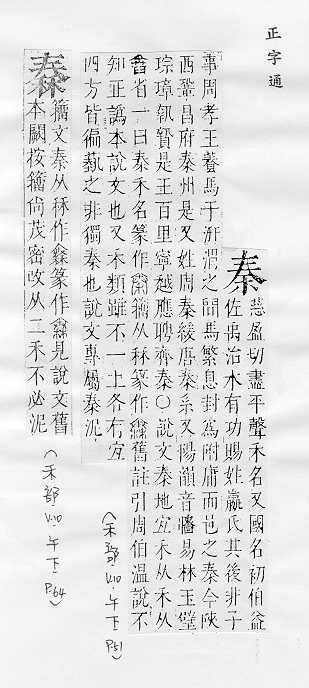 正字通
秦 慈盈切盡平聲禾名又國名初伯益
佐禹治水有功賜姓嬴氏其後非子
事周孝王養馬于汧渭之閒馬繁息封爲附庸而邑之秦今陝
西鞏昌府秦州是又姓周秦綾唐秦系又陽韻音牆易林玉璧
琮璋執贄是王百里寧越應聘齊秦○說文秦地宜禾从禾从
舂省一曰秦禾名篆作籒从秝篆作舊註引周伯溫說不
知正譌本說文也又禾類雖不一土各有宜
四方皆徧蓺之非獨秦也說文專屬秦泥
(禾部 k.10 午下 P51)
籒文秦从秝作篆作見說文舊
本闕按籒尙茂密改从二禾不必泥
(禾部 k.10 午下 P.64)